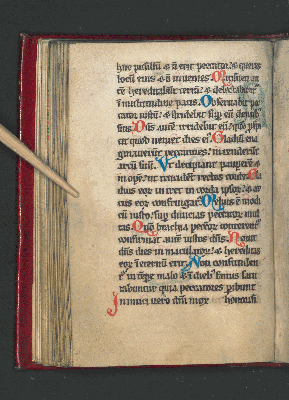 huc pusillu & n erit peccator & queres
locu eius & n inuenies Mansueti au
te hereditabut terra & delectabutr
i multitudine pacis Obseruabit pec
cator iustu & stridebit sup eu detib3
suis Dns aute irridebit eu quo pspi
cit quod ueniet dies ei Gladiu eua
ginauerut peccatores intenderut
arcu suu Vt decipiant paupere &
inope ut trucident rectos corde Gla
dius eor intret in corda ipsor & ar
cus eor confringat Melius e modi
cu iusto sup diuicias peccator mul
tas Quo brachia peccator conterent
confirmat aute iustos dns Nouit
dns dies in maculator & hereditas
eor i eternu erit Non confundent
i tepe malo & i dieb famis satu
rabuntur quia peccatores peribunt
Inimici uero dni mox honorifi